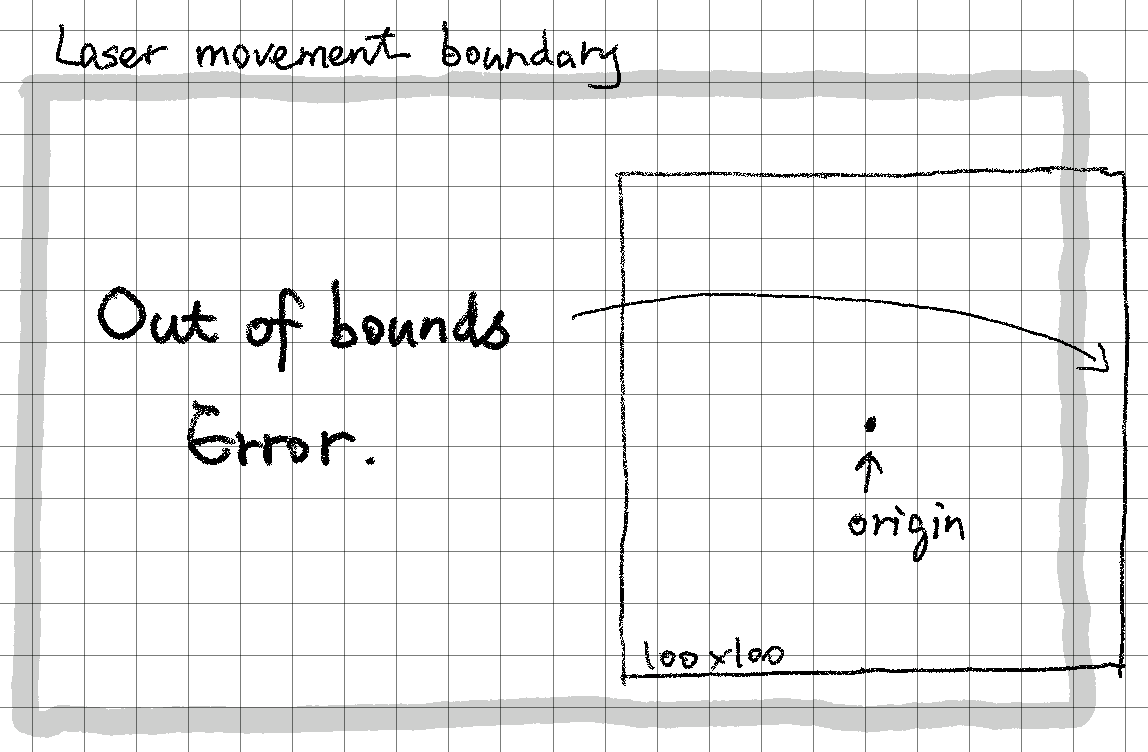 Laser movement boundary
Out of bounds
Error.
origin
100x100